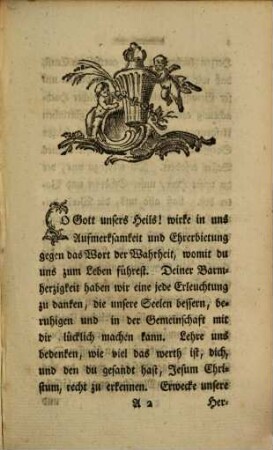 O Gott unsers Heils! wirke in uns
Aufmerksamkeit und Ehrerbietung
gegen das Wort der Wahrheit, womit du
uns zum Leben führest. Deiner Barm-
herzigkeit haben wir eine jede Erleuchtung
zu danken, die unsere Seelen bessern, be-
ruhigen und in der Gemeinschaft mit
dir lücklich machen kann. Lehre uns
bedenken, wie viel das werth ist, dich,
und den du gesandt hast, Jesum Chri-
stum, recht zu erkennen. Erwecke unsere
A 2 Her-